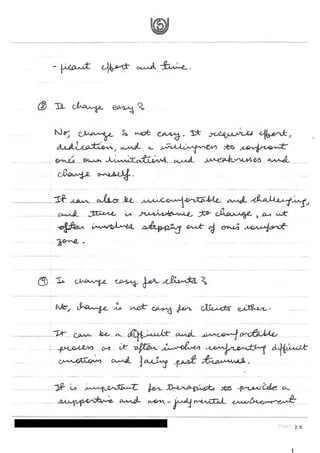 - ficant effort and time.
⑧ Is change easy?
No, change is not easy. It requires effort,
dedication, and a willingness to confront
one's own limitations and weaknesses and
change oneself.
It can also be uncomfortable and challenging,
and there is resistance to change, as it
often involves stepping out of one's comfort
zone.
⑨ Is change easy for clients?
No, change is not easy for clients either.
It can be a difficult and uncomfortable
process as it often involves confronting difficult
emotions and facing past traumas.
It is important for therapists to provide a
supportive and non-judgmental environment